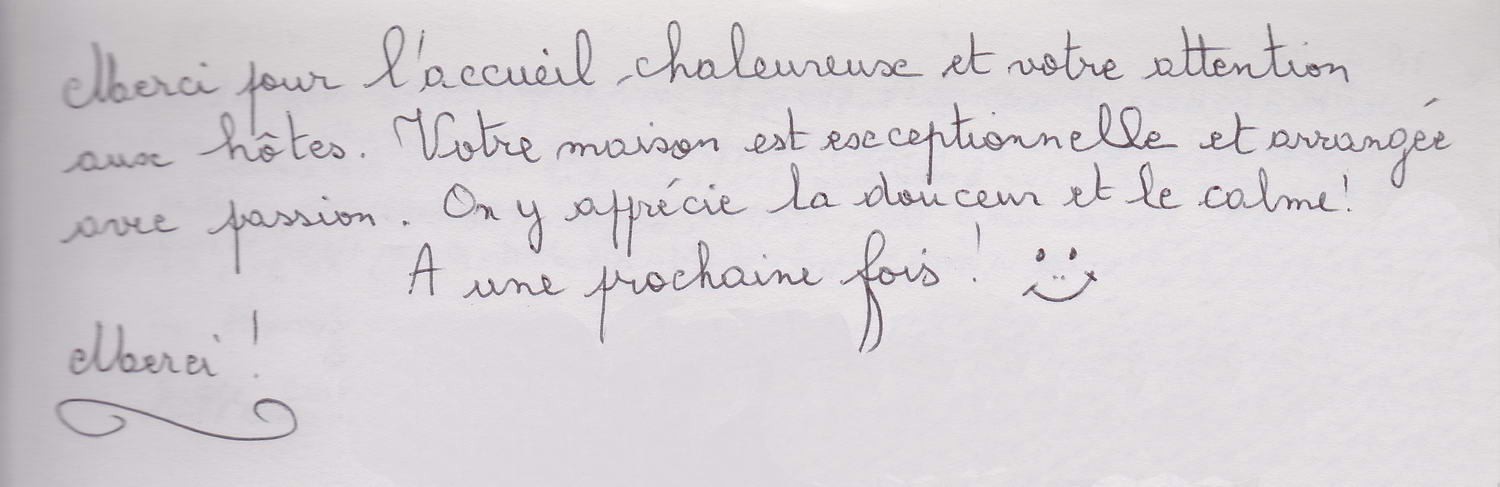 Merci pour l'accueil chaleureuse et votre attention
aux hôtes. Votre maison est exceptionnelle et arrangée
avec passion. On y apprécie la douceur et le calme!
A une prochaine fois!
Merci!